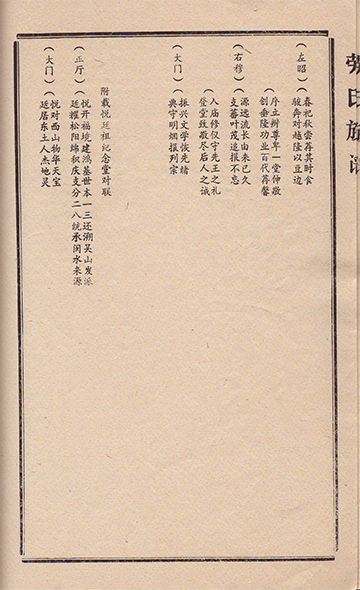 劳氏族谱
（左昭）
春祀秋尝荐其时食
骏奔对越隆以豆边
（ ）
序立辨尊卑一堂伸敬
创垂隆功业百代荐馨
（右穆）
源远流长由来已久
支蕃叶茂追报不忘
（ ）
入庙修仪守先王之礼
登堂致敬尽后人之诚
（大门）
振兴文学恢先绪
典守明烟报列宗
附载悦廷祖纪念堂对联
（正厅）
悦开福境建鸿基世本一三还溯吴山发派
廷耀松阳绵积庆支分二八统承闽水来源
（大门）
悦对西山物华天宝
廷居东土人杰地灵